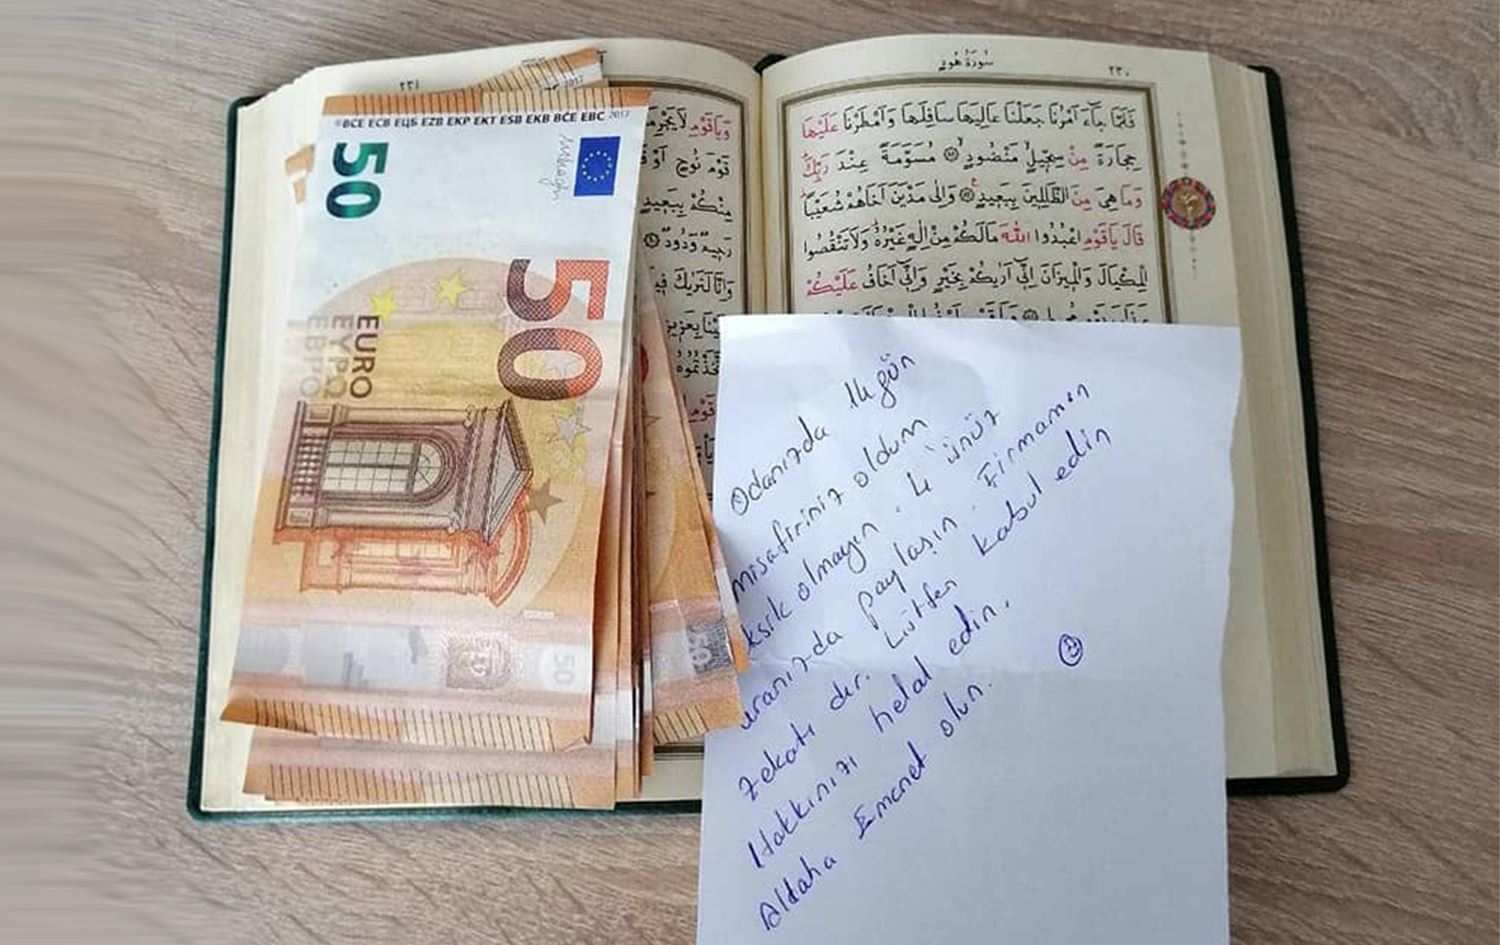 ٢٣١
سُورَةُ هُودٍ
٢٣٠
فَلَمَّا جَاءَ اَمْرُنَا جَعَلْنَا عَالِيَهَا سَافِلَهَا وَاَمْطَرْنَا عَلَيْهَا
حِجَارَةً مِنْ سِجّ۪يلٍ مَنْضُودٍ مُسَوَّمَةً عِنْدَ رَبِّكَ
وَمَا هِيَ مِنَ الظَّالِم۪ينَ بِبَع۪يدٍ وَاِلٰى مَدْيَنَ اَخَاهُمْ شُعَيْبًا
قَالَ يَاقَوْمِ اعْبُدُوا اللّٰهَ مَالَكُمْ مِنْ اِلٰهٍ غَيْرُهُ وَلَا تَنْقُصُوا
الْمِكْيَالَ وَالْم۪يزَانَ اِنّ۪ي اَرٰيكُمْ بِخَيْرٍ وَاِنّ۪ي اَخَافُ عَلَيْكُمْ
وَيَاقَوْمِ لَا
قَوْمَ نُوحٍ اَوْ
مِنْكُمْ بِبَع۪يدٍ
رَح۪يمٌ وَدُودٌ
وَاِنَّا لَنَرٰيكَ ف۪ي
©BCE ECB ЕЦБ EZB EKP EKT ESB EKB BČE EBC 2017
50
50
EURO
ΕΥΡΩ
ЕВРО
50
2017
Odanızda 14 gün
misafiriniz oldum
eksik olmayın 4'ünüz
aranızda paylaşın. Firmamın
zekatı dır. Lütfen kabul edin
Hakkınızı helal edin.
Aldaha Emanet olun.